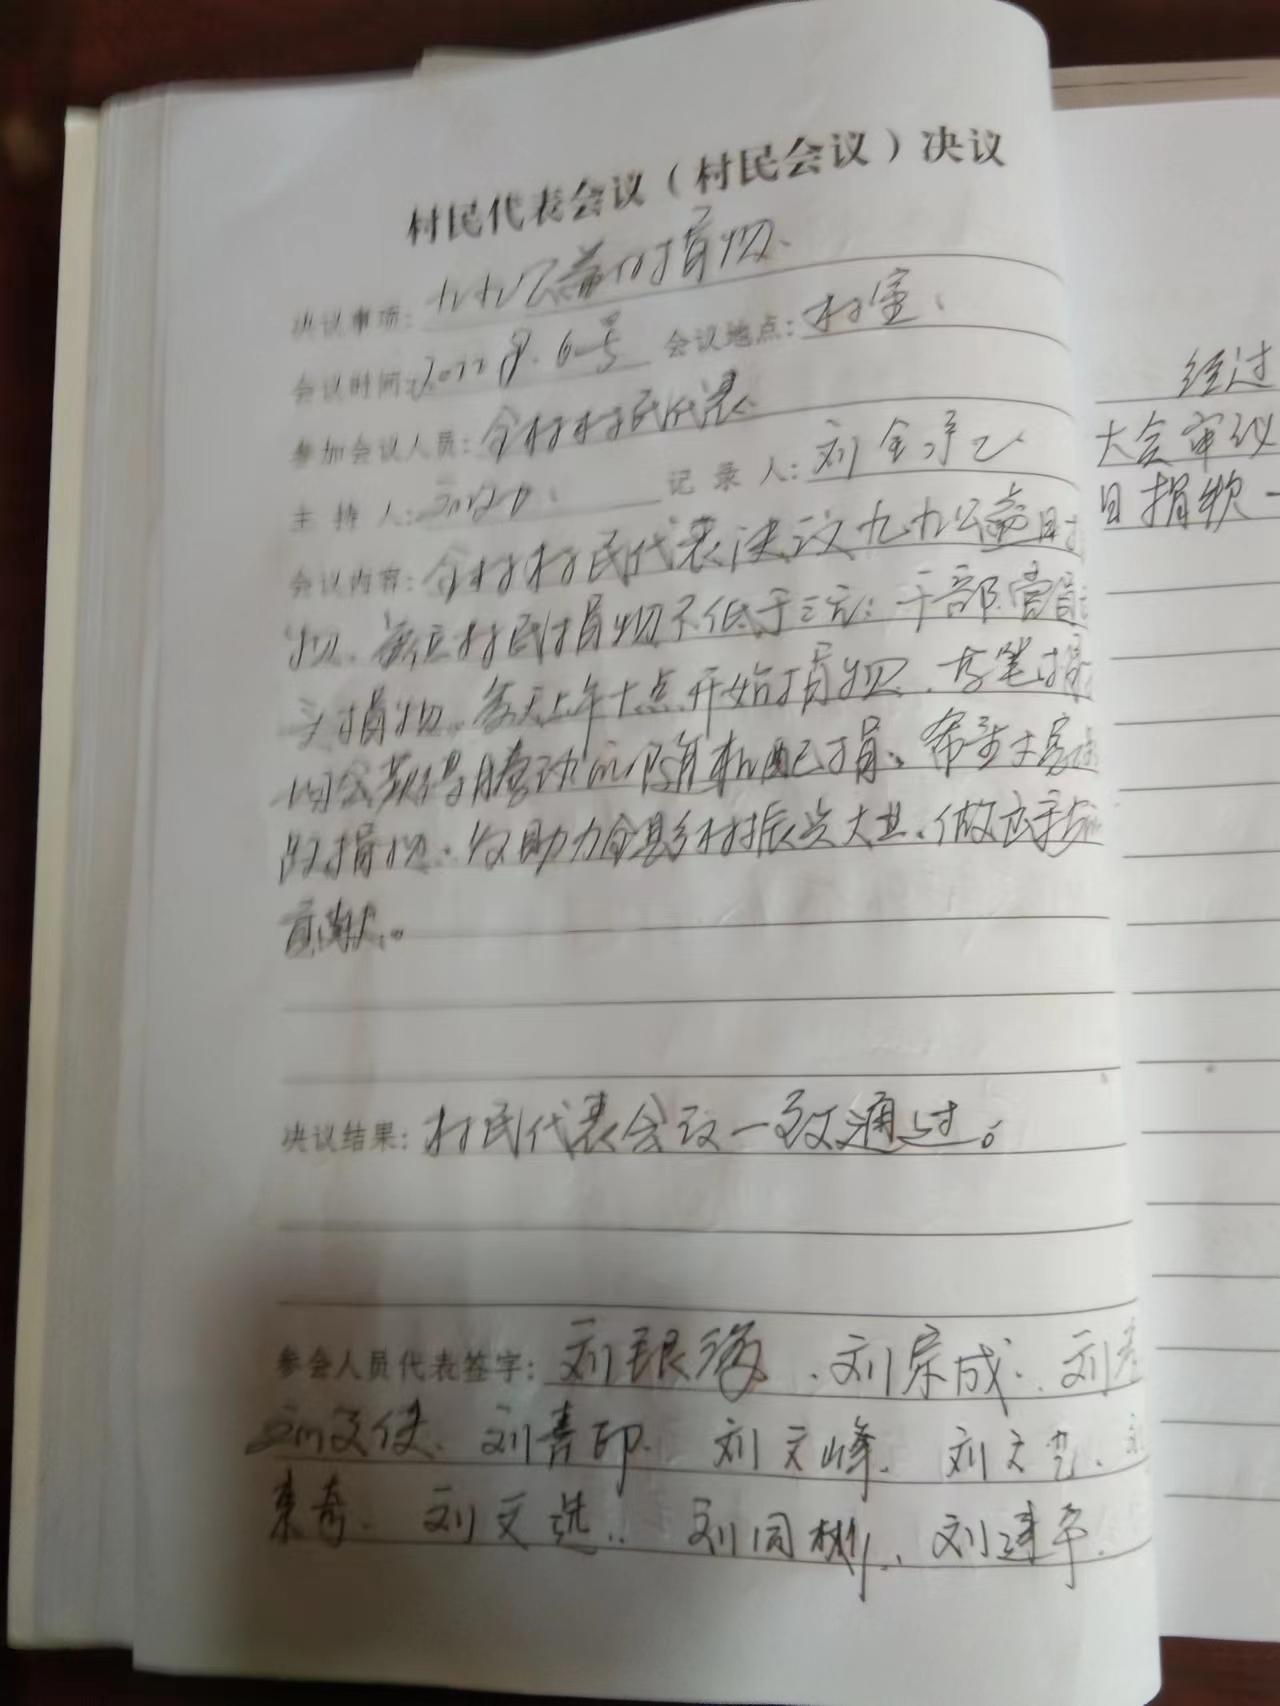 村民代表会议（村民会议）决议
决议事项：九九公益村捐物、
会议时间：2022 8.6号 会议地点：村室、
参加会议人员：全村村民代表
主持人： 记录人：刘全
会议内容：全村村民代表决议九九公益日
物、每位村民捐物不低于三元：干部党员
头捐物。每天上午十点开始捐物、每笔捐
会获得腾讯的随机配捐、希望大家
的捐物、为助力全县乡村振兴大业、做出
贡献。
决议结果：村民代表会议一致通过。
参会人员代表签字：刘银海、刘宗成、刘
文使、刘喜印、刘文峰、刘文
来奇、刘文选、刘同彬、刘建平
经过
大会审议
日捐款一